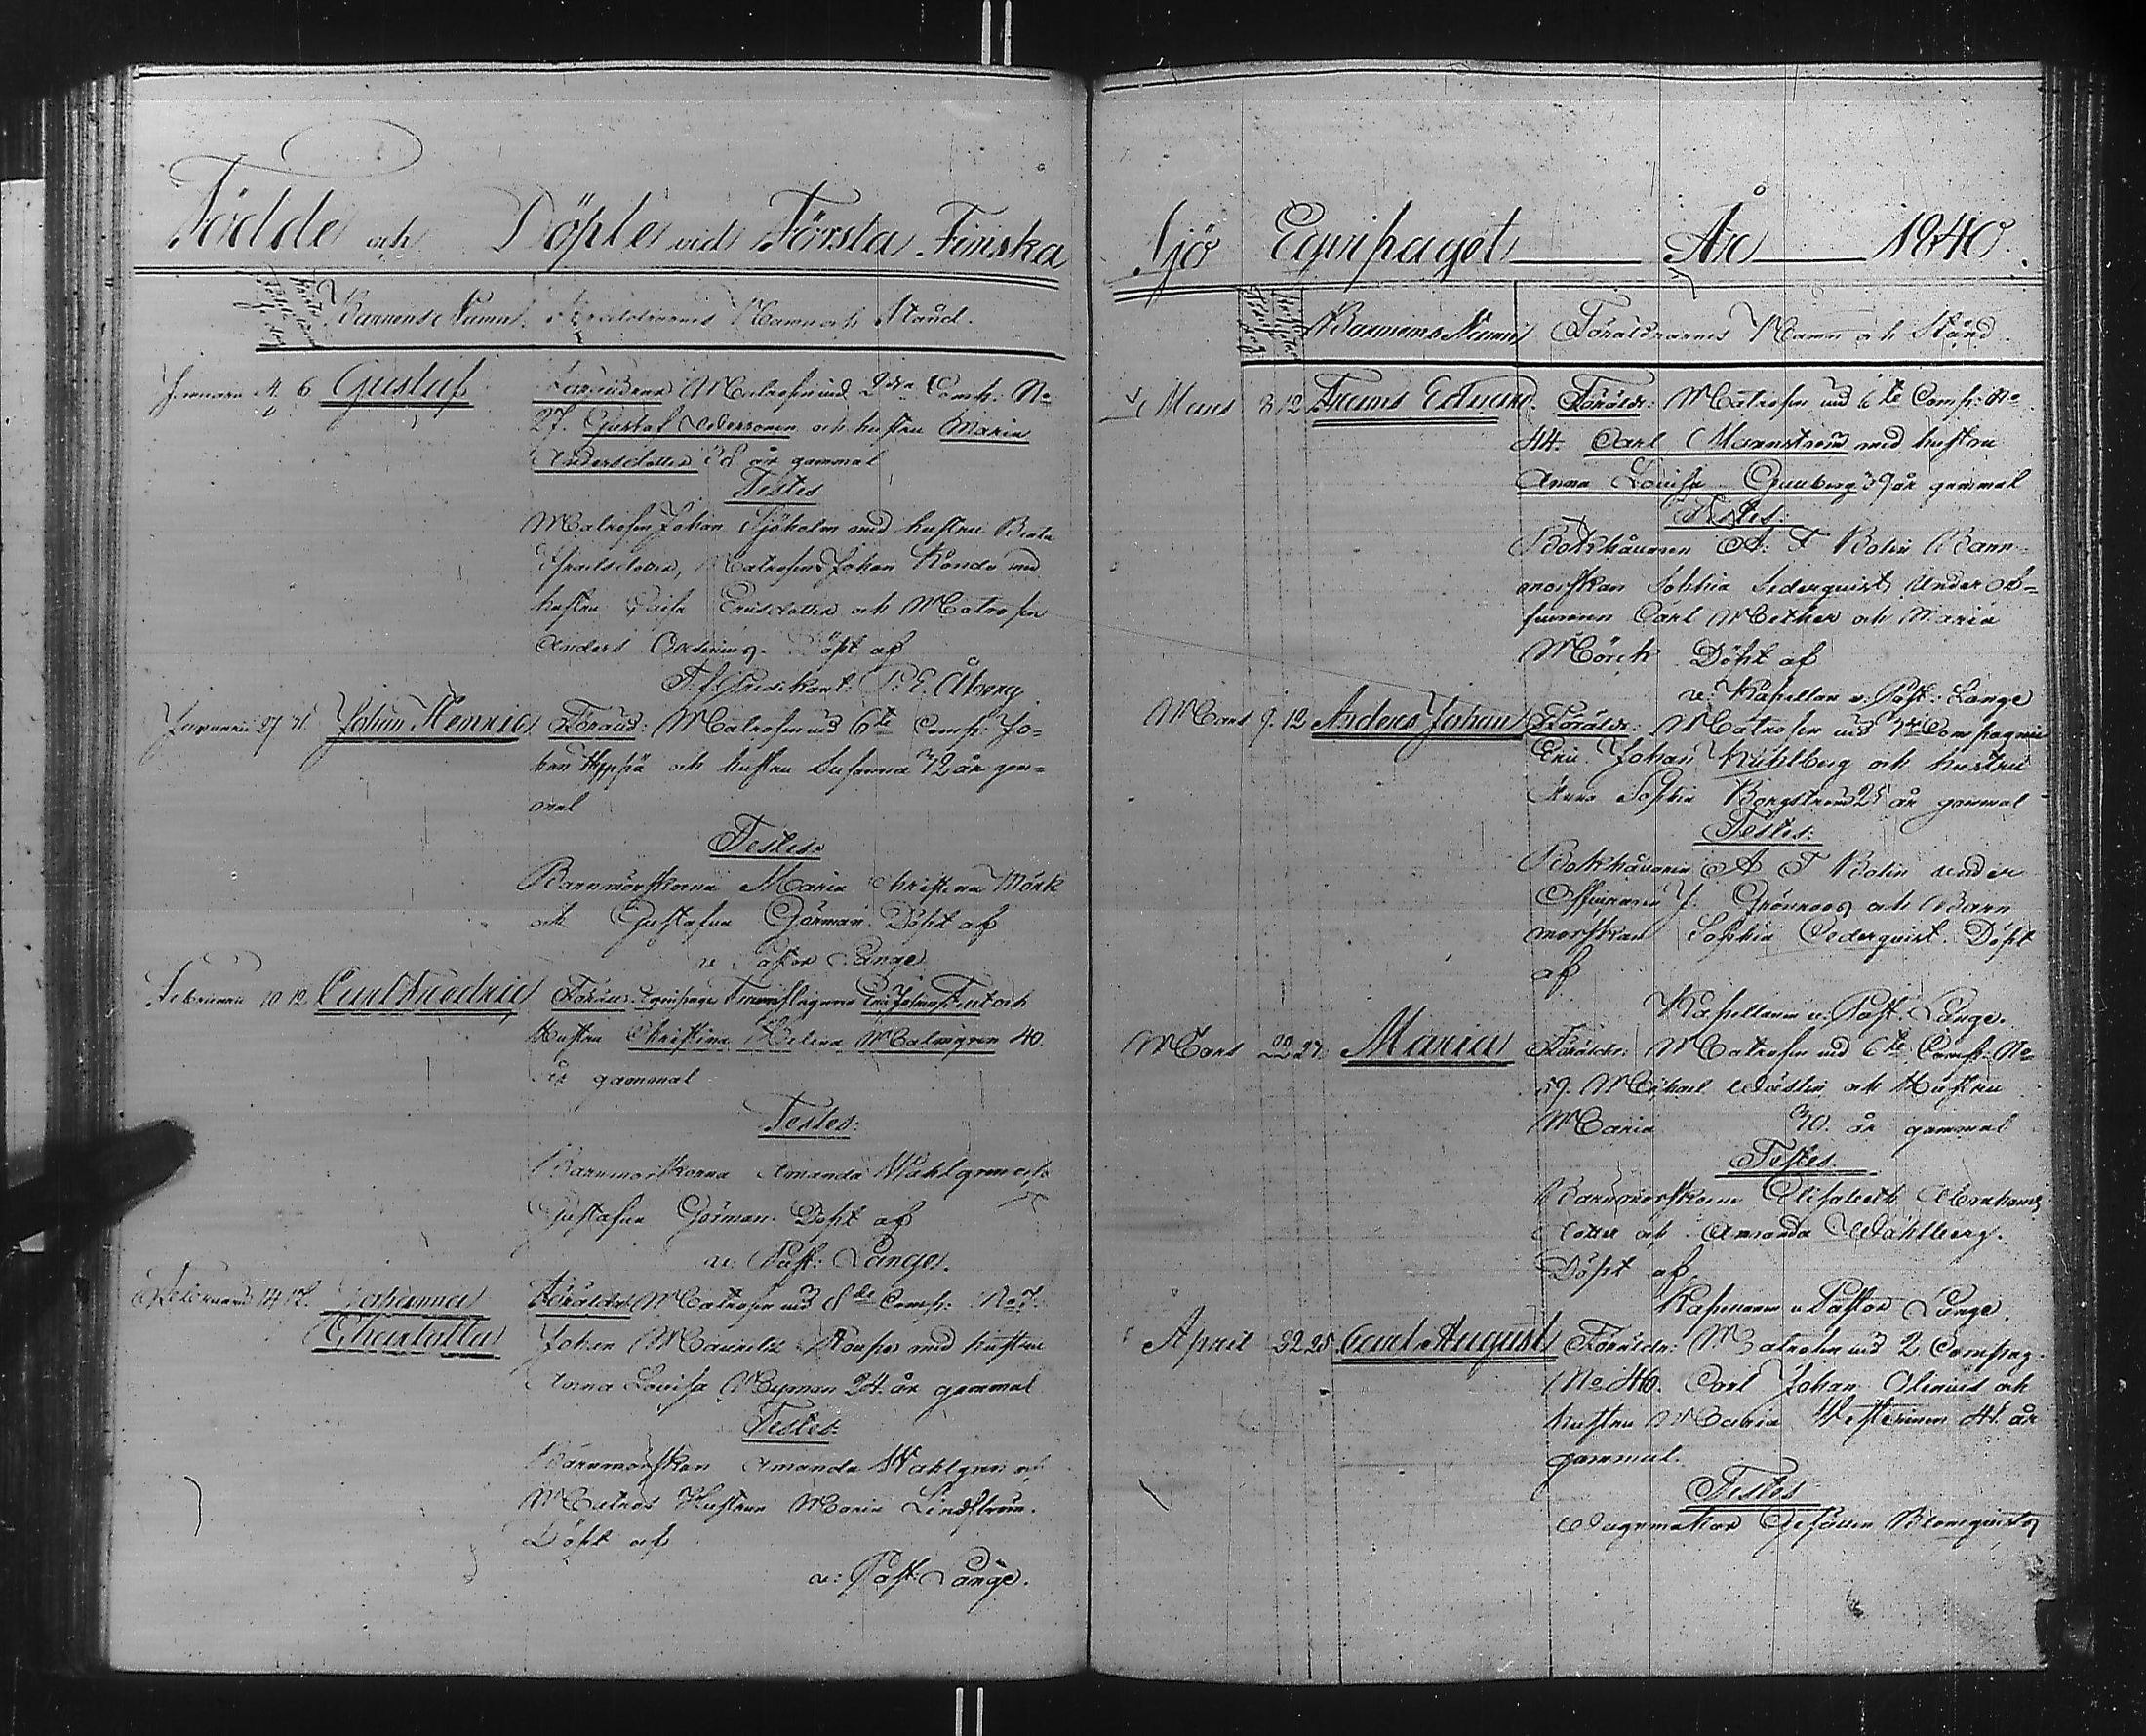 Födde och Döpte vid Första Finska
Barnens Namn. Föräldrarnes Namn och Stånd.
Januari 4. 6 Gustaf Föräldrar Matrosen vid 2dra Comp: No
27. Gustaf och hustru Maria
Andersdotter 38 år gammal
Testes
Matrosen Johan Sjöholm med hustru Beata
Matrosen Johan med
hustru Caisa Ericsdotter och Matrosen
Anders Döpt af
T. f. Predikant: Åberg
Januari 27 Johan Henric Föräld: Matrosen vid 6te Comp: Jo=
han och hustru Susanna 32 år gam=
mal
Testes:
Barnmorskorna Maria Christina Mörk
och Gustafva Görman. Döpt af
v Pastor Lange
Februari 10 12. Carl Fredric Föräld: Equipage Eric Johan och
Hustru Christina Helena Malmgren 40.
år gammal
Testes:
Barnmorskorna Amanda Wahlgren och
Gustafva Görman. Döpt af
v: Past: Lange.
Februari 14 17. Johanna Föräldr: Matrosen vid 8de Comp: No 7.
Charlotta Johan Mauritz med hustru
Anna Lovisa Nyman 24. år gammal
Testes:
Barnmorskan Amanda Wahlgren och
Matros Hustrun Maria Lindström.
Döpt af
v: Past: Lange.
Sjö Equipaget År 1840.
Barnens Namn Föräldrarnes Namn och Stånd.
Mars 3 12 Frans Eduard. Föräldr: Matrosen vid 6te Comp: No
44. Carl Mannström med hustru
Anna Lovisa 39 år gammal
Testes:
Bokhållaren A: F Bolin Barn=
morskan Sophia Sederquist Under Of=
ficeren Carl Mether och Maria
Mörck Döpt af
v: Kapellan v. Past: Lange
Mars 9. 12 Anders Johan Föräldr: Matrosen vid Compagnie
Eric Johan Kuhlberg och hustru
Anna Sophia Borgström 25 år gammal
Testes:
Bokhållaren A F Bolin under
Officeraren J. Grönroos och Barn
morskan Sophia Cederquist. Döpt
af
Kapellanen v. Past. Lange.
Mars 22 27. Maria Föräldr: Matrosen vid 6te Comp: No
59. Michael och Hustru
Maria 30. år gammal
Testes
Barnmorskorna Elisabeth Abrahams
dotter och Amanda Wahlberg.
Döpt af
v Pastor Lange.
April 22 25. Carl August Föräldr: Matrosen vid 2 Compag:
No 46. Carl Johan Olenius och
hustru Maria 41. år
gammal.
Testes
Vagnmakar Gesällen Blomquist